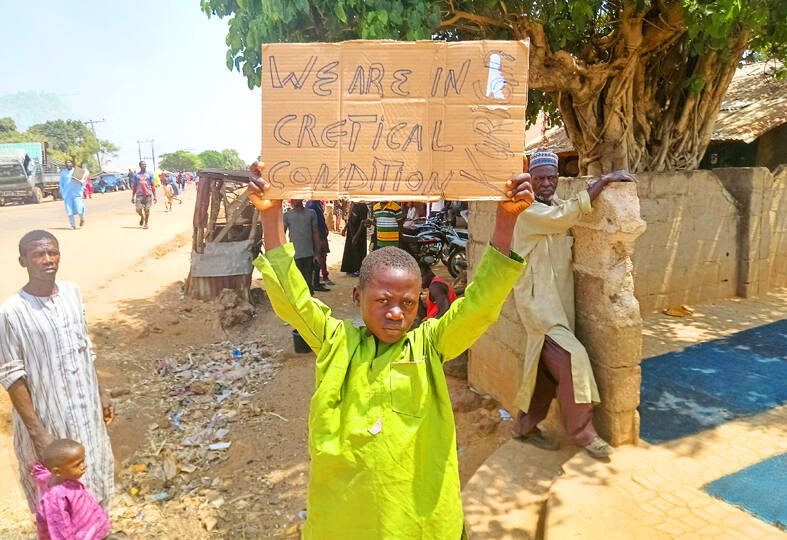 WE ARE IN
CRETICAL
CONDITION